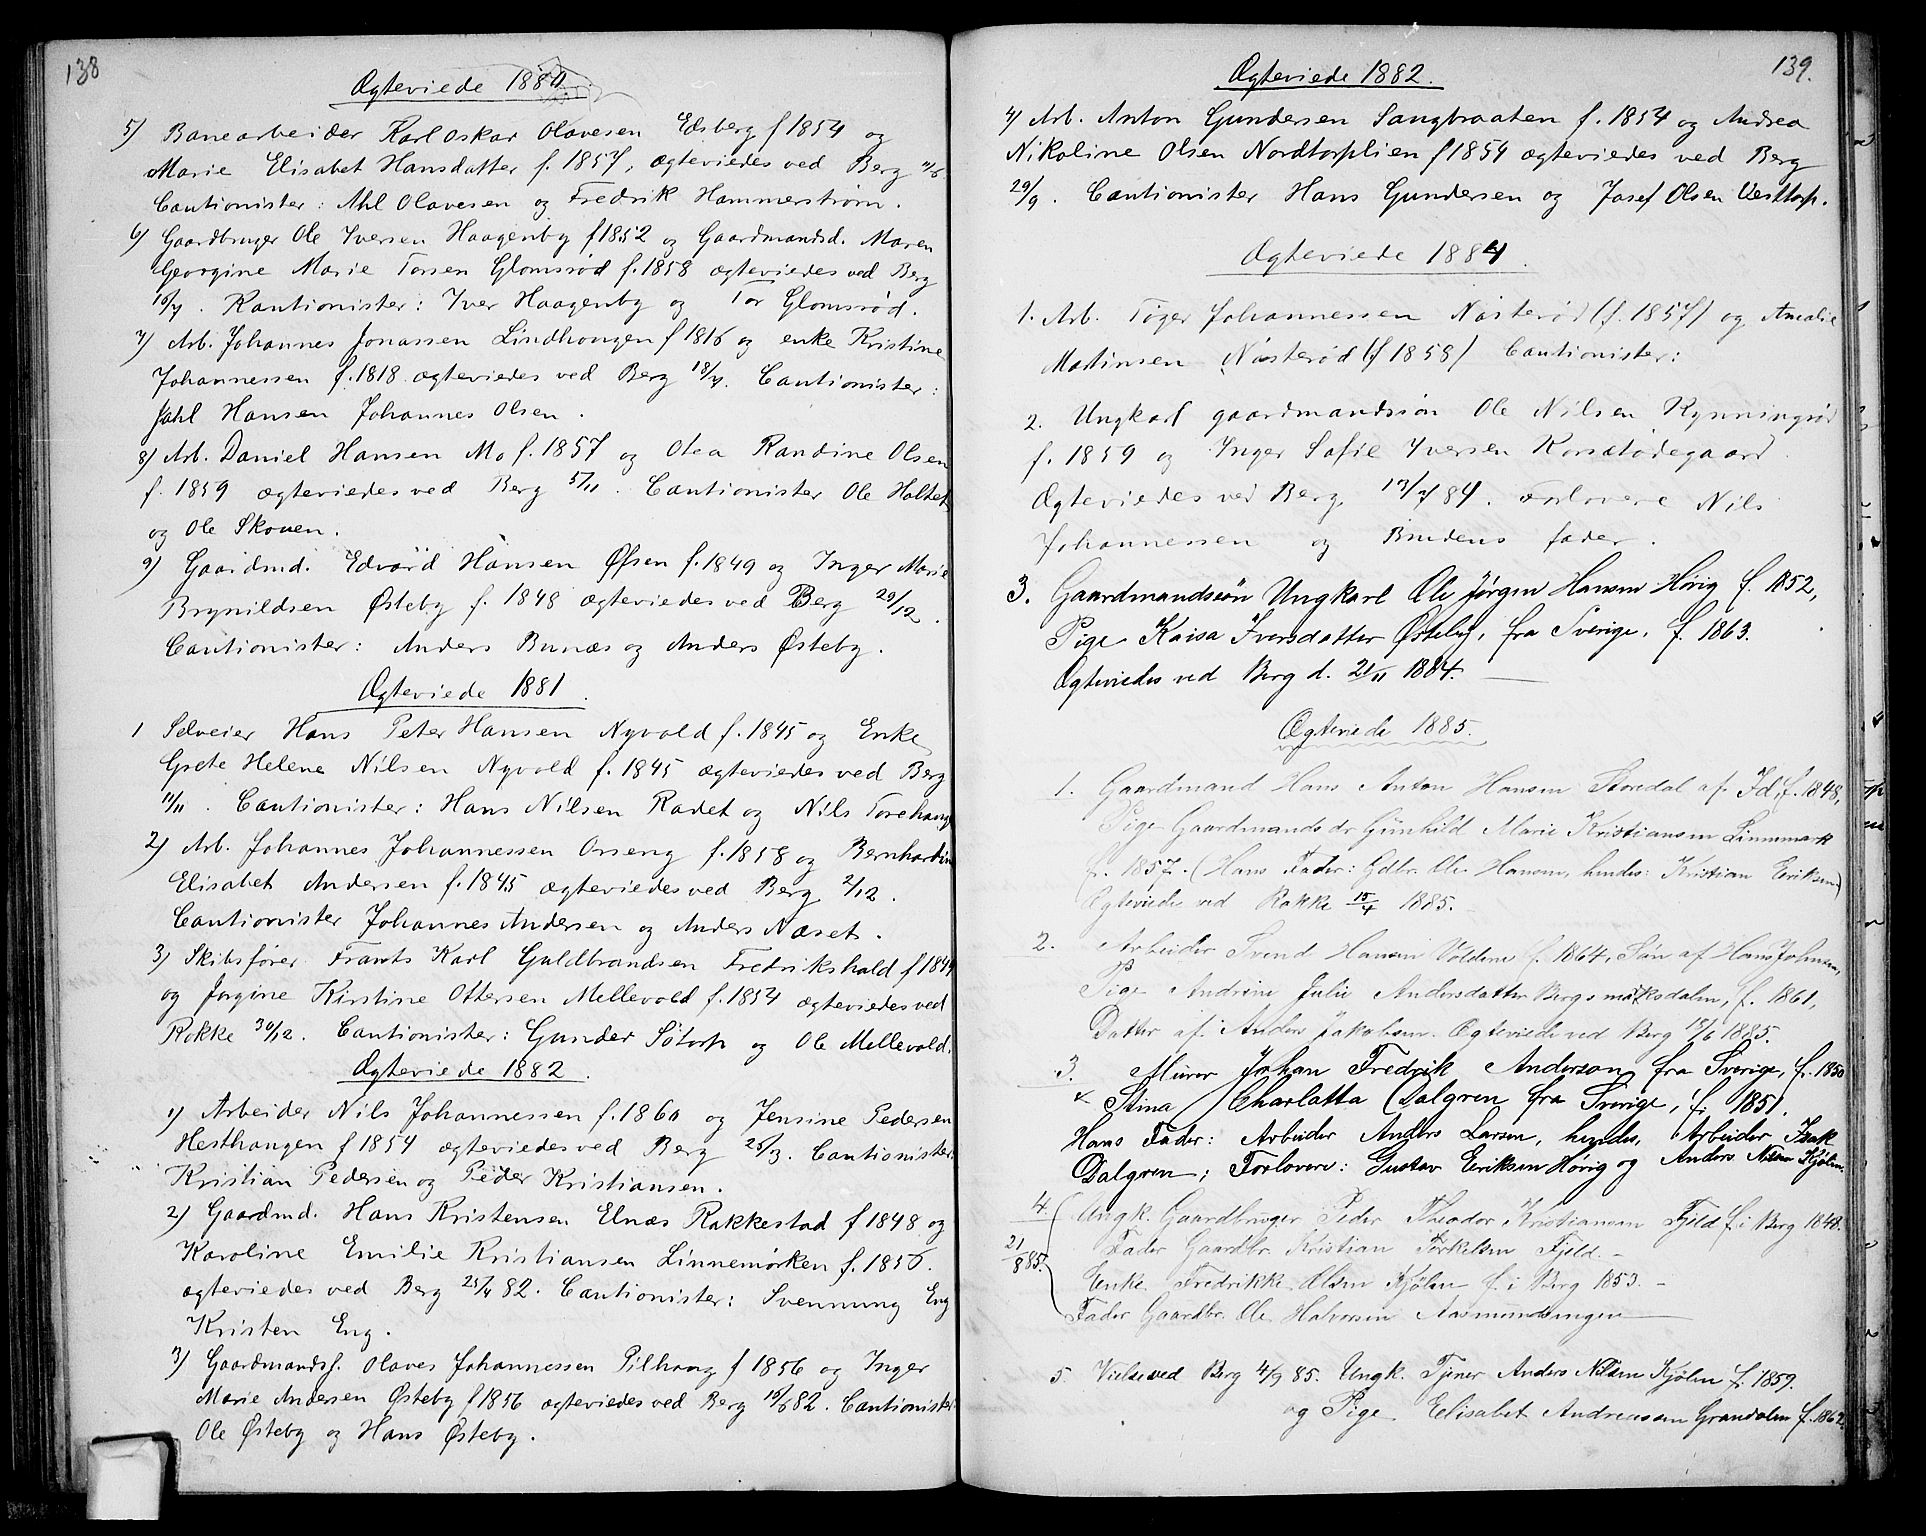 138
Ægteviede 1881.
5) Banearbeider Karl Oskar Olavesen Edsberg f 1854 og
Marie Elisabet Hansdatter f. 1857, ægteviedes ved Berg
Cautionister: Ahl Olavesen og Fredrik Hammerstrøm.
6) Gaardbruger Ole Iversen Haagenby f 1852 og Gaardmandsd. Maren
Georgine Marie Torsen Glomsrød f. 1858 ægteviedes ved Berg
10/7. Kautionister: Iver Haagenby og Tor Glomsrød.
7) Arb. Johannes Jonassen Lindhougen f 1816 og enke Kristine
Johannessen f. 1818 ægteviedes ved Berg 18/7. Cautionister:
Jahl Hansen Johannes Olsen.
8) Arb. Daniel Hansen Mo f. 1857 og Olea Randine Olsen
f. 1859 ægteviedes ved Berg 5/11. Cautionister Ole Holtet
og Ole Skouen.
9) Gaardmd. Edvard Hansen Øfsen f. 1849 og Inger Marie
Brynildsen Østeby f. 1848 ægteviedes ved Berg 29/12.
Cautionister: Anders Bunæs og Anders Østeby.
Ægteviede 1881.
1 Selveier Hans Peter Hansen Nyvold f. 1845 og Enke
Grete Helene Nilsen Nyvold f. 1845 ægteviedes ved Berg
11/11. Cautionister: Hans Nilsen Radet og Nils Torehaug
2) Arb. Johannes Johannessen Orseng f. 1858 og Bernhardin
Elisabet Andersen f. 1845 ægteviedes ved Berg 2/12.
Cautionister Johannes Andersen og Anders Næset.
3) Skibsfører Frants Karl Guldbrandsen Fredrikshald f 1844
og Jørgine Kirstine Ottersen Mellevold f. 1854 ægteviedes ved
Rokke 30/12. Cautionister: Gunder Sötorp og Ole Mellevold.
Ægteviede 1882.
1) Arbeider Nils Johannessen f. 1860 og Jensine Pedersen
Hesthaugen f 1854 ægteviedes ved Berg 26/3. Cautionister:
Kristian Pedersen og Peder Kristiansen.
2) Gaardmd. Hans Kristensen Elnæs Rakkestad f 1848 og
Karoline Emilie Kristiansen Linnemörken f. 1856.
ægteviedes ved Berg 25/4 82. Cautionister: Svennung Eng
Kristen Eng.
3) Gaardmandsf. Olaves Johannessen Pilhaug f 1856 og Inger
Marie Andersen Østeby f 1856 ægteviedes ved Berg 16/6 82. Cautionister:
Ole Østeby og Hans Østeby.
139.
Ægteviede 1882.
4) Arb. Anton Gundersen Sangbraaten f. 1854 og Andrea
Nikoline Olsen Nordtorplien f 1854 ægteviedes ved Berg
29/9. Cautionister Hans Gundersen og Josef Olsen Vesttorp.
Ægteviede 1884.
1. Arb. Töger Johannessen Nästeröd (f. 1857) og Amalie
Matinsen Nästerød (f 1858) Cautionister:
2. Ungkarl gaardmandssön Ole Nilsen Kynningsrød
f. 1859 og Inger Sofie Iversen Korsetødegaard.
Ægteviedes ved Berg 13/7 84. Forlovere Nils
Johannessen og Brudens fader.
3. Gaardmandssön Ungkarl Ole Jörgen Hansen Hövig f. 1852,
Pige Kaisa Iversdatter Østeby, fra Sverige, f. 1863.
Ægteviedes ved Berg d. 21/11 1884.
Ægteviede 1885.
1. Gaardmand Hans Anton Hansen Stordal af Id, f. 1848,
Pige Gaardmandsdr Gunhild Marie Kristiansen Linnemark
f. 1857. (Hans Fader: Gdbr. Ole Hansen, hendes: Kristian Eriksen)
Ægteviede ved Rokke 15/4 1885.
2. Arbeider Svend Hansen Voldene f. 1864, Sön af Hans Johnsen,
Pige Andrine Julie Andersdatter Bergsmarksdalen, f. 1861,
Datter af: Anders Jakobsen. Ægteviede ved Berg 15/6 1885.
3. Murer Johan Fredrik Anderson fra Sverige, f. 1850
& Stina Charlatta Dalgren fra Sverige, f. 1851.
Hans Fader: Arbeider Anders Larsen, hendes, Arbeider Isak
Dalgren; Forlovere: Gustav Eriksen Hövig og Anders Nilsen Kjölen.
4. Ungk. Gaardbruger Peder Theodor Kristiansen Fjeld f. i Berg 1848.
21/8 85. Fader Gaardbr. Kristian Torkelsen Fjeld.
Enke Fredrikke Olsen Kjölen f. i Berg 1853.
Fader Gaardbr. Ole Halvorsen Aasmundsengen
5. Vielse ved Berg 4/9 85. Ungk. Tjener Anders Nilsen Kjölen f. 1859.
og Pige Elisabet Andreassen Grandalen f. 1862